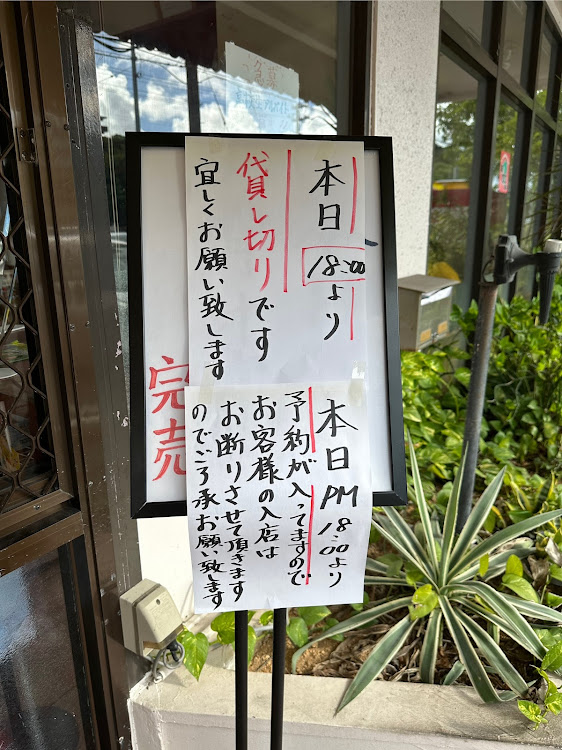 本日18:00より
貸し切りです
宜しくお願い致します
完売
本日PM18:00より
予約が入ってますので
お客様の入店は
お断りさせて頂きます
のでご了承お願い致します